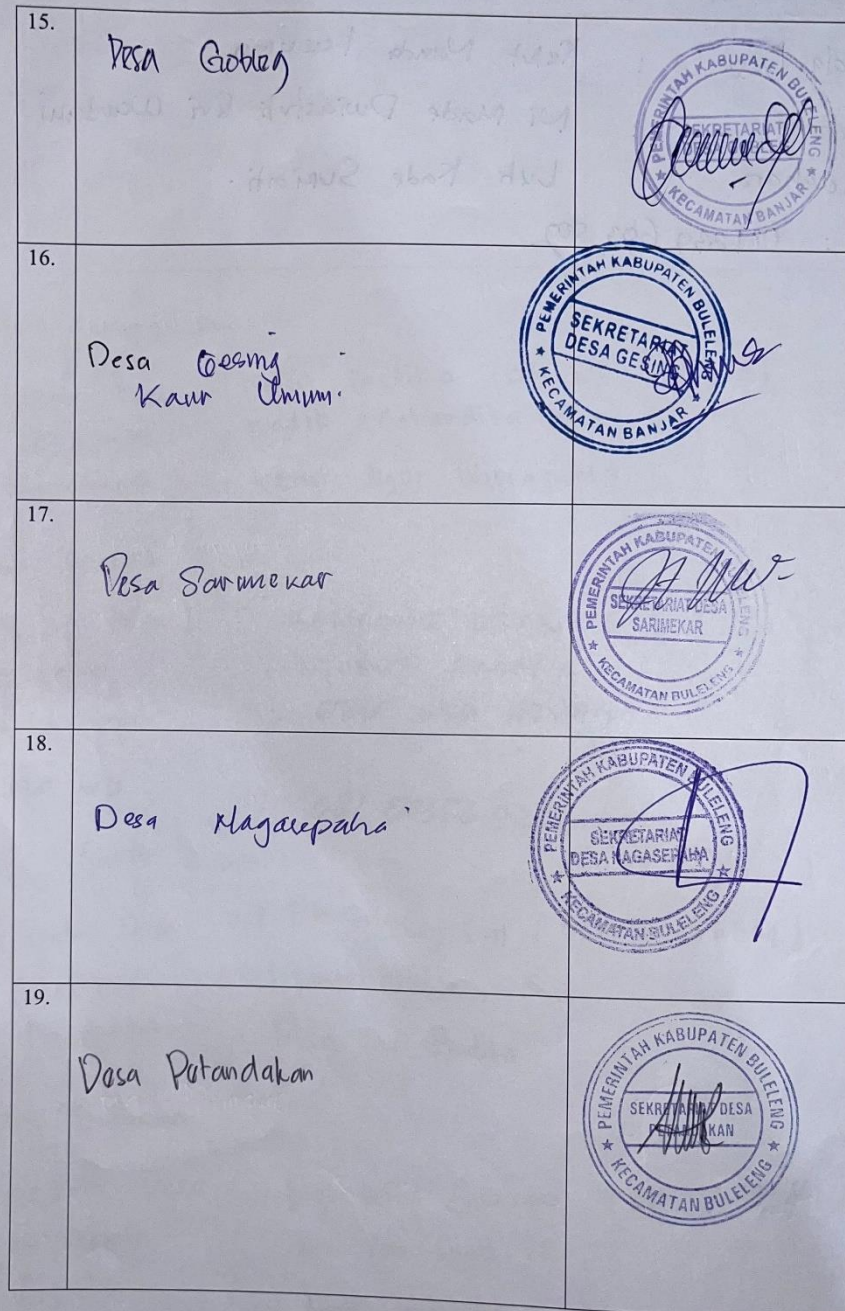 15.
Desa Gobleg
PEMERINTAH KABUPATEN BULELENG
SEKRETARIAT
KECAMATAN BANJAR
16.
Desa Gesing
Kaur Umum.
PEMERINTAH KABUPATEN BULELENG
SEKRETARIAT
DESA GESING
KECAMATAN BANJAR
17.
Desa Sarimekar
PEMERINTAH KABUPATEN BULELENG
SEKRETARIAT DESA
SARIMEKAR
KECAMATAN BULELENG
18.
Desa Nagasepaha
PEMERINTAH KABUPATEN BULELENG
SEKRETARIAT
DESA NAGASEPAHA
KECAMATAN BULELENG
19.
Desa Petandakan
PEMERINTAH KABUPATEN BULELENG
SEKRETARIAT DESA
PETANDAKAN
KECAMATAN BULELENG